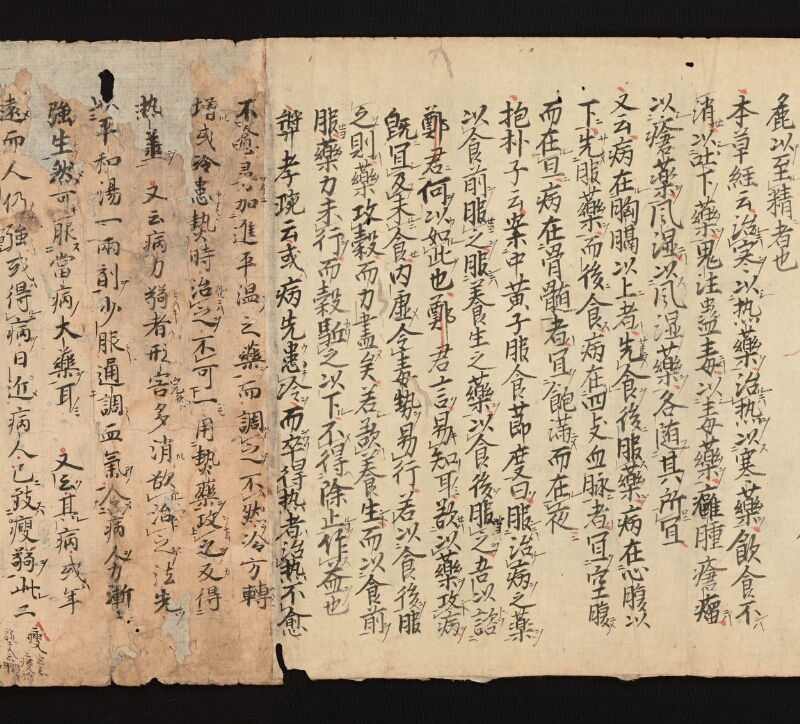 麁以至精者也
本草経云治寒以热藥治热以寒藥飲食不
消以吐下藥鬼注蟲毒以毒藥癰腫瘡瘤
以瘡藥风湿以风湿藥各随其所冝
又云病在胸膈以上者先食後服藥病在心腹以
下先服藥而後食病在四支血脉者冝空腹
而在旦病在骨髓者冝飽満而在夜
抱朴子云案中黄子服食莭度曰服治病之藥
以食前服之服養生之藥以食後服之吾以諮
鄭君何以如此也鄭君言易知耳欲以藥攻病
既冝及未食内虚令毒勢易行若以食後服
之則藥攻穀而力盡矣若欲養生而以食前
服藥力未行而穀駈之以下不得除止作益也
孝琬云或病先患冷而卒得热者治热不愈
不瘥冝加進平温之藥而調之不然冷方轉
増或冷患热時治之不可一用热藥攻之及得
热 又云病力弱者形害多消欲治之法先
以平和湯一兩剤少服通調血氣令病人力漸
強生然可服當病大藥耳 又云其病或年
遠而人仍強或得病日近病人已致瘦弱此二
瘦